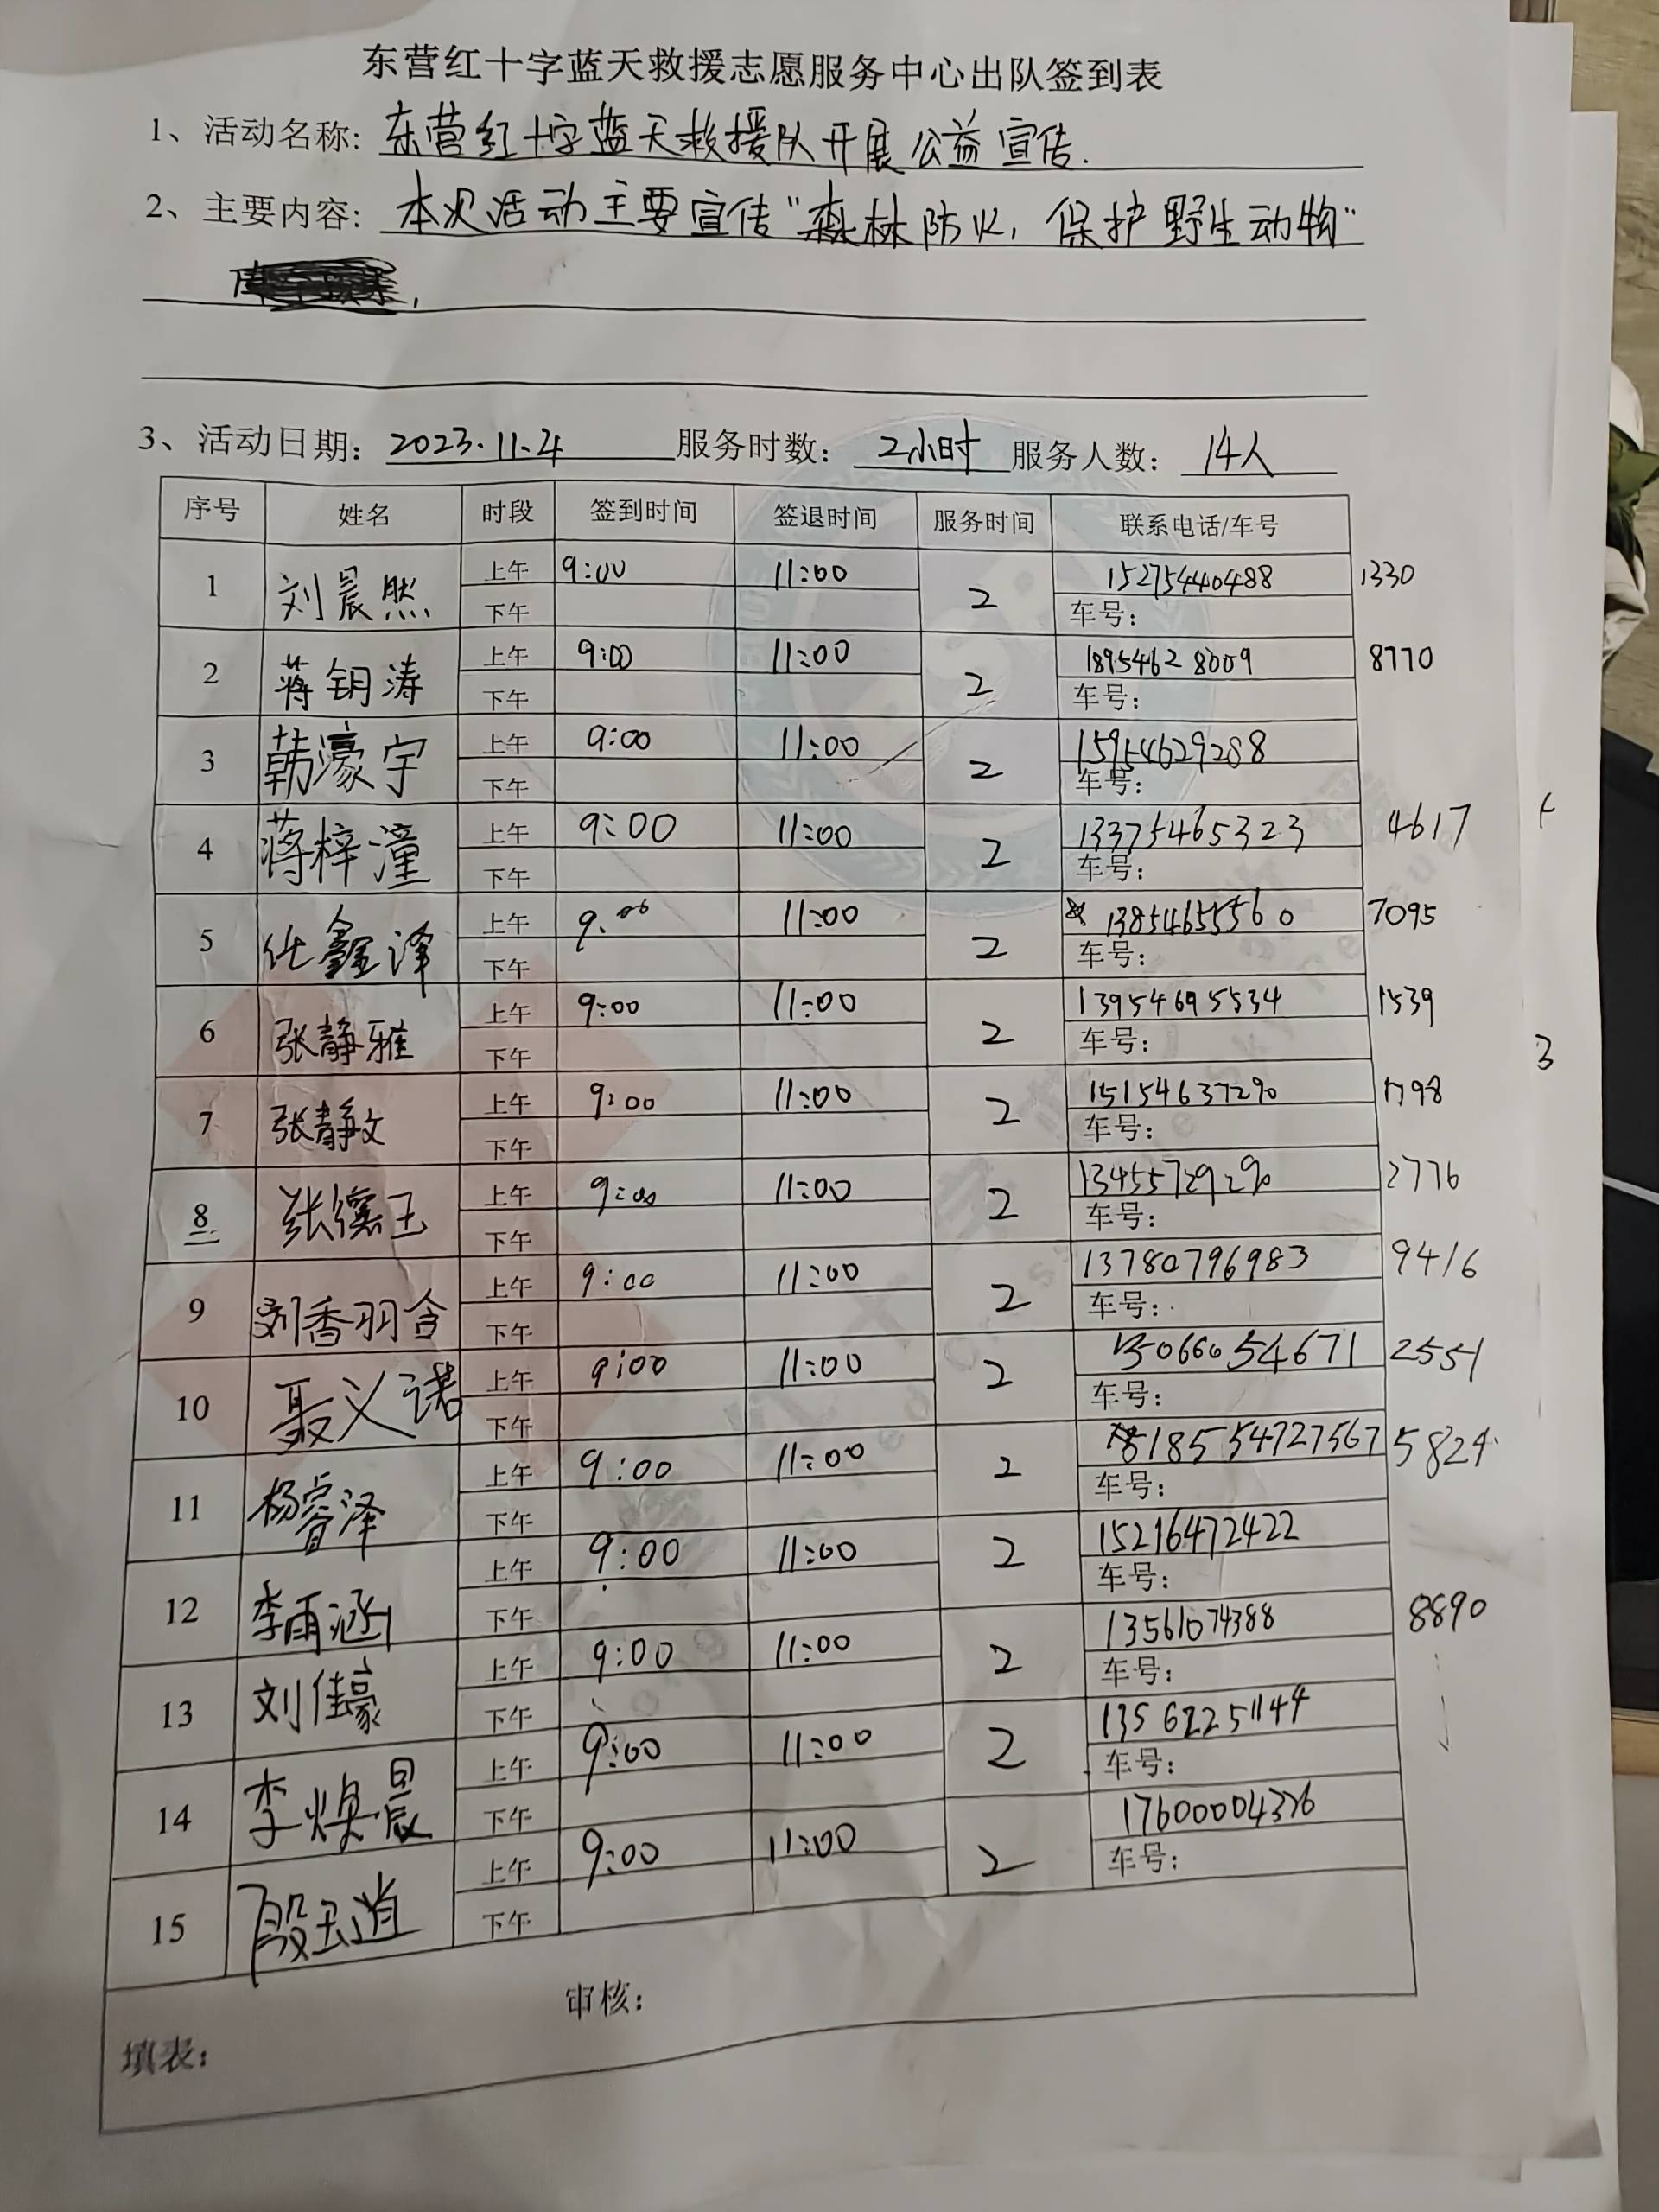 东营红十字蓝天救援志愿服务中心出队签到表
1、活动名称: 东营红十字蓝天救援队开展公益宣传.
2、主要内容: 本次活动主要宣传"森林防火,保护野生动物"
3、活动日期: 2023.11.4 服务时数: 2小时 服务人数: 14人
序号 姓名 时段 签到时间 签退时间 服务时间 联系电话/车号
1 刘晨然 上午 9:00 11:00 2 15275440488 1330
下午 车号:
2 蒋钥涛 上午 9:00 11:00 2 18954628009 8770
下午 车号:
3 韩濠宇 上午 9:00 11:00 2 15954629288
下午 车号:
4 蒋梓潼 上午 9:00 11:00 2 13375465323 4617
下午 车号:
5 任鑫泽 上午 9:00 11:00 2 13854655560 7095
下午 车号:
6 张静雅 上午 9:00 11:00 2 13954695534 1539
下午 车号:
7 张静文 上午 9:00 11:00 2 15154637290 1798
下午 车号:
8 上午 9:00 11:00 2 13455729290 2776
下午 车号:
9 刘香羽含 上午 9:00 11:00 2 13780796983 9416
下午 车号:
10 聂义诺 上午 9:00 11:00 2 2551
下午 车号:
11 杨睿泽 上午 9:00 11:00 2 18554727567 5824
下午 车号:
12 李雨涵 上午 9:00 11:00 2 15216472422
下午 车号:
13 刘佳豪 上午 9:00 11:00 2 13561074388 8890
下午 车号:
14 李焕晨 上午 9:00 11:00 2 13562251144
下午 车号:
15 殷玉道 上午 9:00 11:00 2 17600004376
下午 车号:
审核:
填表: